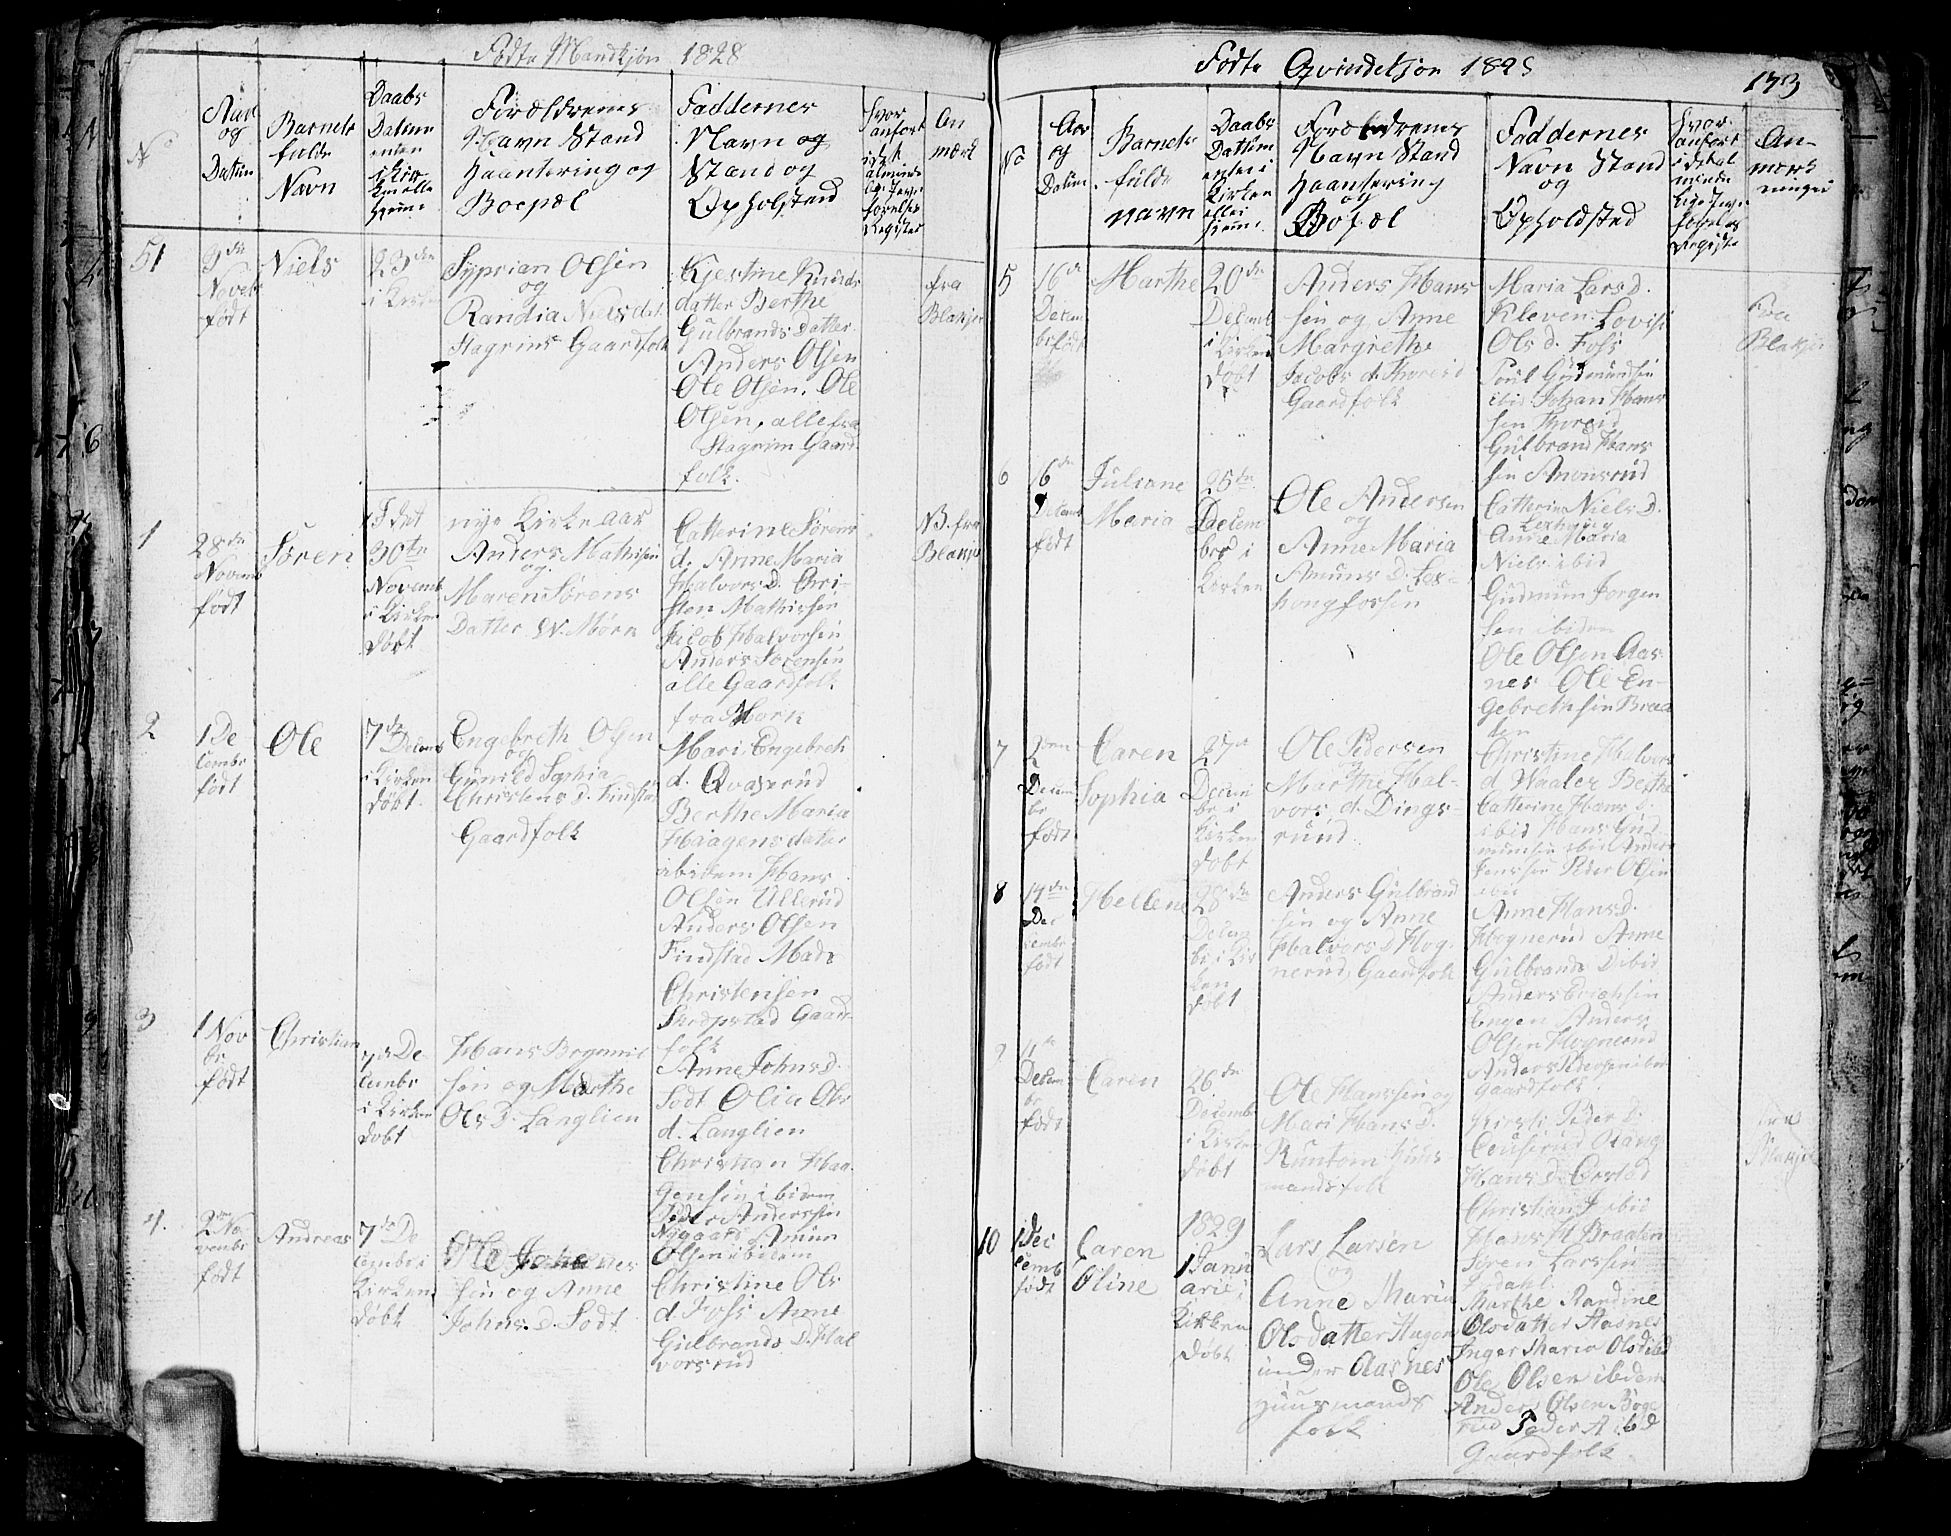 Födte Mandkjön 1828
No
Aar
og
Datum
Barnets
fulde
Navn
Daabs
Datum
enten
i Kir
ken elle
Hjeme
Foræeldrenes
Navn Stand
Haantering og
Boepæl
Faddernes
Navn og
Stand og
Opholstæd
Hvor
anfört
i det
alminde
lige Jevn
förelses
Register
An
mærk
51
3die
Novebr
födt
Niels
23de
i Kirken
Syprian Olsen
og
Randia Niels dt.
Hagrim Gaardfolk
Kjestine Knuds
datter Berthe
Gulbrands Datter
Anders Olsen
Ole Olsen. Ole
Olsen, alle fra
Hagrim Gaard
folk.
fra
Blakjer
I det
nye Kirke aar
1
28de
Novemb
födt
Sören
30te
Novemb
i Kirken
döbt
Anders Mathisen
og
Maren Sörens
Datter W. Mörk
Catterine Sörens
d. Anne Maria
Halvors D. Chri-
sten Mathissen
Jacob Halvorsen
Anders Sörensen
alle Gaardfolk
fra Mörk
NB. fra
Blakjer
2
1 De
cembr
födt
Ole
7de Decemb
i Kirken
döbt.
Engebreth Olsen
og
Gunild Sophia
Christens D. Findstad
Gaardfolk
Mari Engebreth
d. Qvaserud
Berthe Maria
Haagens datter
ibidem Hans
Olsen Ullerud
Anders Olsen
Findstad Mads
Christensen
Skedpstad Gaard-
folk
3
1 Nov
br.
födt
Christian
7de De-
cembr
i Kirken
döbt
Hans Brynnil
sen og Marthe
Ols D. Langlien
Anne Johns D.
Sodt Olia Ols
d. Langlien
Christian Haa-
gensen ibidem
Peder Anderssen
Nygaard Amun
Olsen ibidem
4.
2den No
vembr
födt
Andreas
7de De
cembr i
Kirken
döbt
Ole Johannes
sen og Anne
Johns. D. Sodt
Christine Ols
d. Foss Anne
Gulbrands D. Hal
vorsrud
Födte Qvindekjön 1828
173
No
Aar
og
Datum
Barnets
fulde
Navn
Daabs
Dattum
enten i
Kirken
eller
hjemme
Foræeldrenes
Navn Stand
Haantering
og
Bopæl
Faddernes
Navn Stand
og
Opholdsted
Hvor
anfört
i det al
mindel
lige Jevn
förelses
Registe
An-
mærk
ninger
5
16de
Decem
br födt
Marthe
20de
Decemb
i Kirken
döbt
Anders Hans
sen og Anne
Margrethe
Jacobs d. Thoreid
Gaardfolk
Maria Lars D.
Kleven. Lovise
Ols D. Foss
Poul Gudmundsen
ibid Johan Hans
sen Thoreid
Gulbrand Hans
sen Amonsrud
Fra
Blakjer
6
16de
Decemb
födt
Juliane
Maria
25de
Decem
ber i
Kirken
Ole Andersen
og
Anne Maria
Amuns D. Lax-
hongfossen
Catterine Niels D.
Anne Maria
Niels. ibid
Gudmun Jörgen
sen ibidem
Ole Olsen Aas
nes Ole En-
gebrethsen Braa
den
7
2den
Decem
br
födt
Caren
Sophia
27de
Decem
br i
Kirken
döbt
Ole Pedersen
og
Marthe Hal-
vors. d. Dings-
ruud
Christine Halvors
d Waaler Berthe
Catterine Hans D.
ibid Hans Gud
munsen ibid Anders
Jenssen Peder Olsen
ibid
8
14de
De
cembr
födt
Hellene
28de
Decem
br i Kir
ken
döbt
Anders Gulbrand
sen og Anne
Halvors D Hog-
nerud, Gaardfolk
Anne Hans D.
Hognerud Anne
Gulbrands D ibid
Anders Erichsen
Engen Anders
Olsen Hognerud
Anders Pedersen ibid
gaardfolk
9
11de
Decem
br
födt
Caren
26de
Decembr
i Kirken
döbt
Ole Hanssen og
Mari Hans D.
Runtom huus
mandsfolk
Kirsti Peder D.
Hans D. Orstad
Christian J. ibid
fra
Blakjer
10
1 De
cemb
födt
Caren
Oline
1829
1 Janu
arie i
Kirken
döbt
Lars Larsen
og
Anne Maria
Olsdatter Hagen
under Aasnes
Huusmands
folk
Hans H Braaten
Sören Larssen
Marthe Randine
Olsdatter Aasnes
Inger Maria Olsd ibid
Ole Olsen ibidem
Anders Olsen Böge
rud Peder A ibid
Gaardfolk